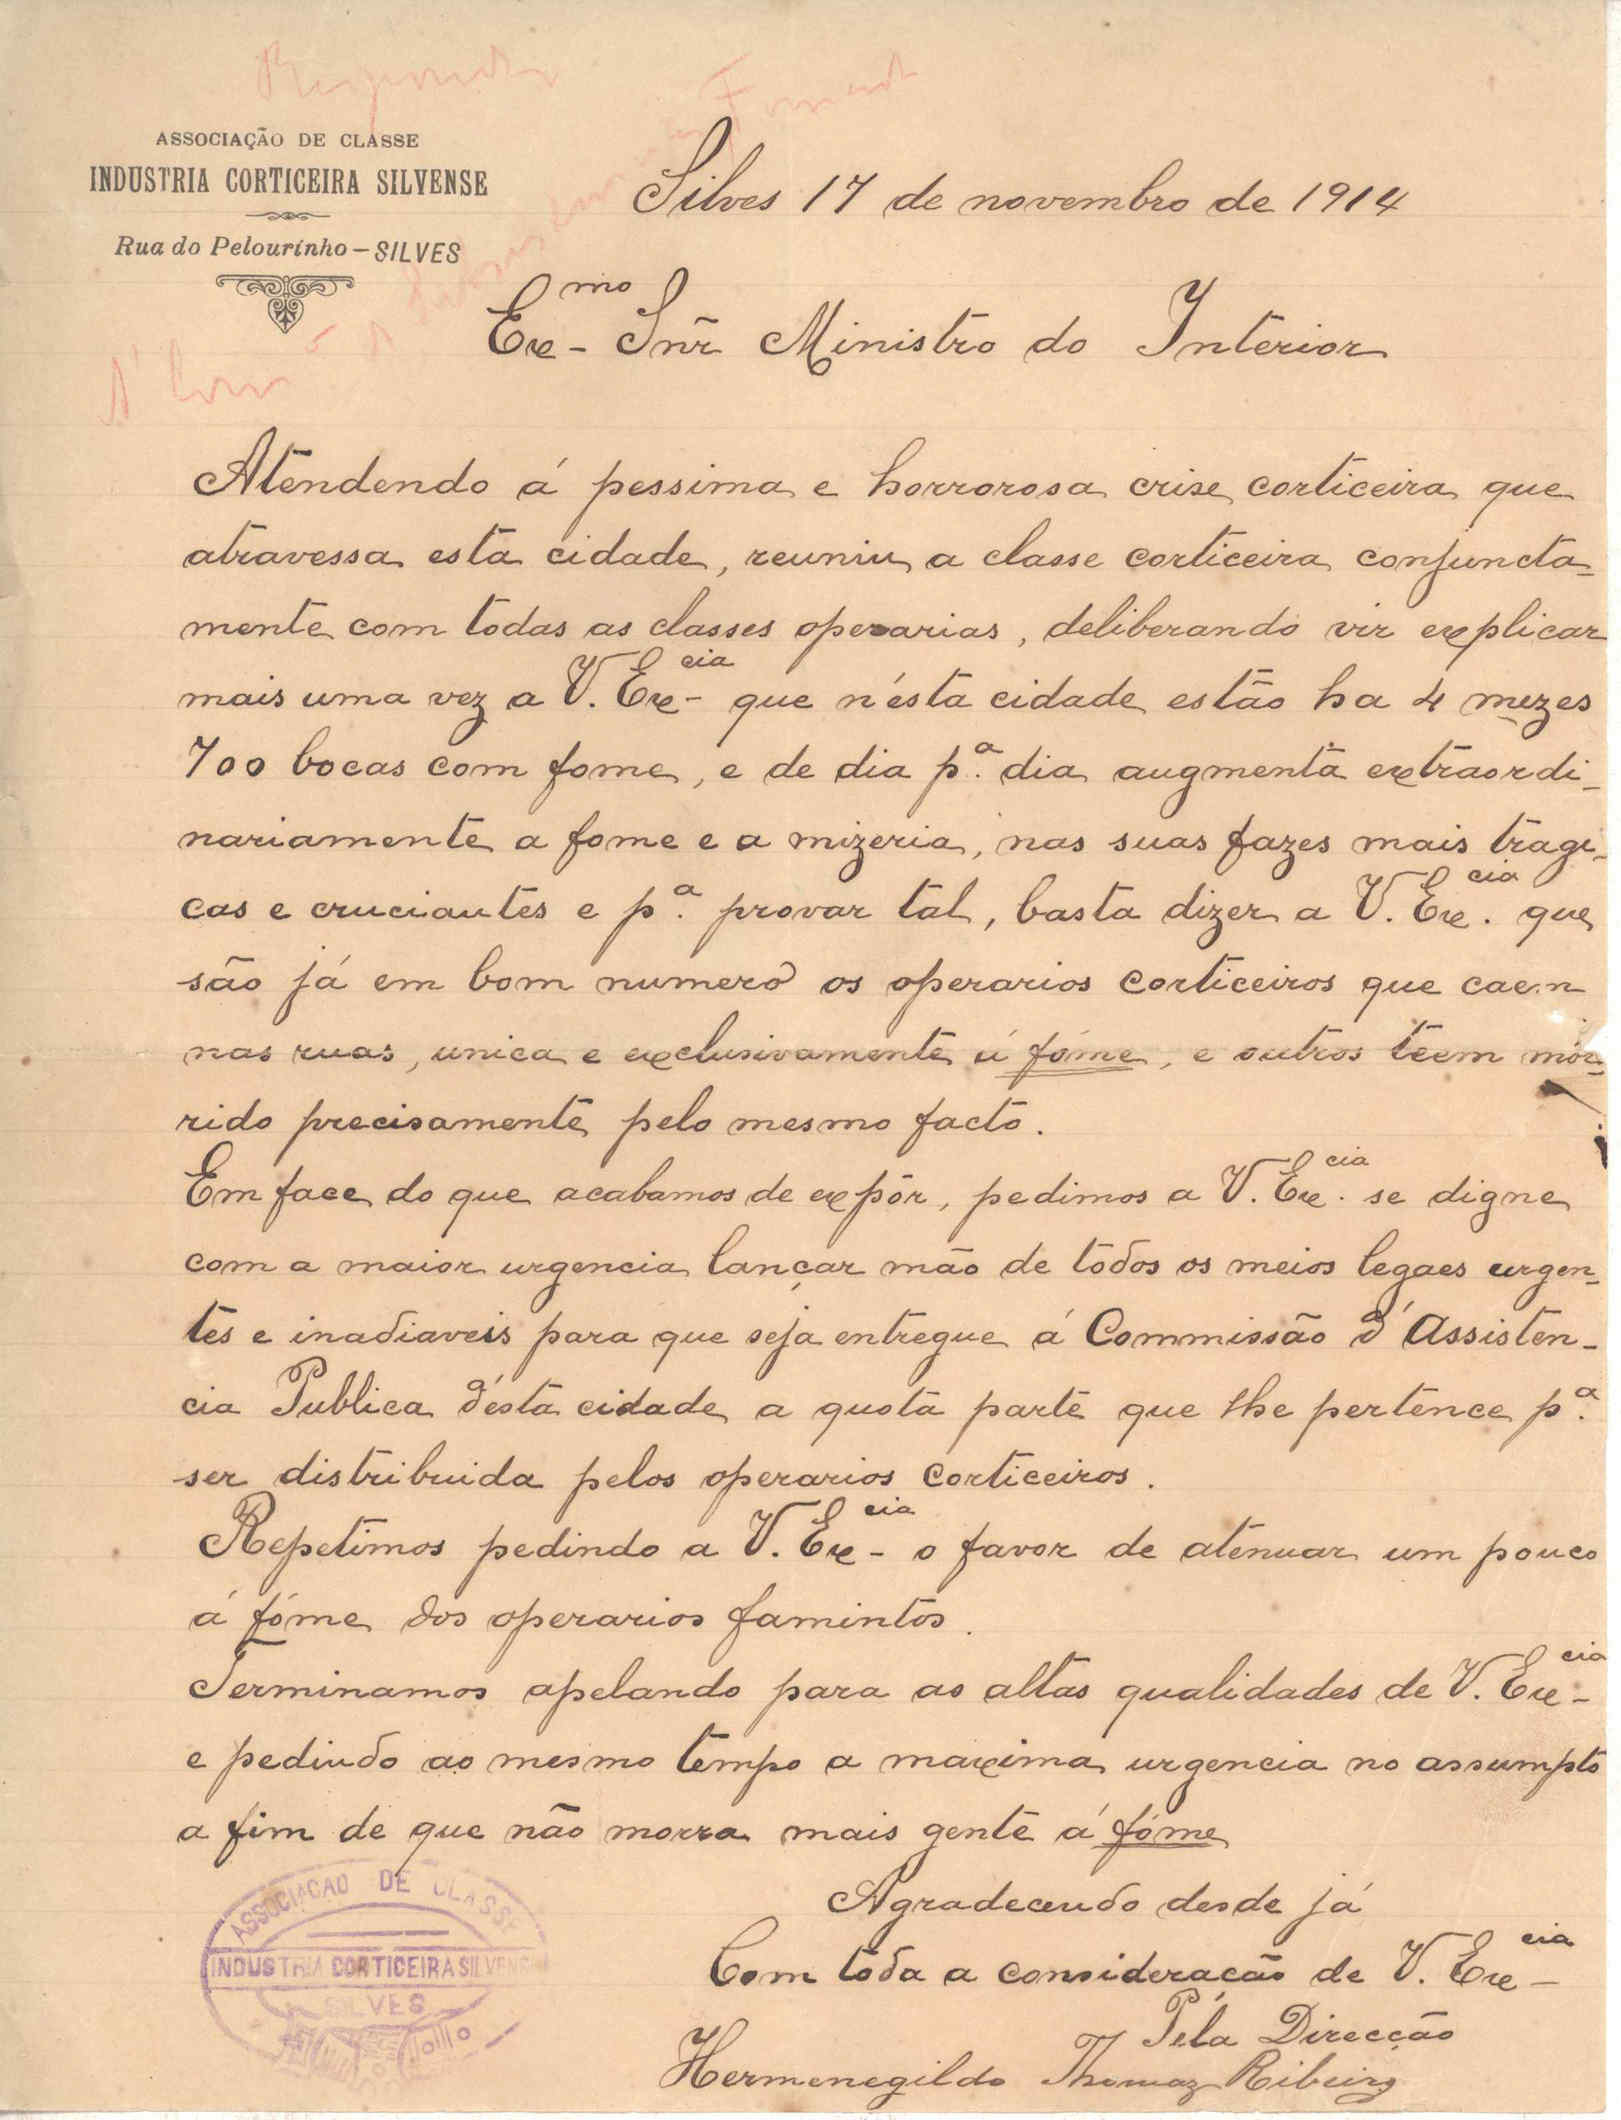 ASSOCIAÇÃO DE CLASSE
INDUSTRIA CORTICEIRA SILVENSE
Rua do Pelourinho – SILVES
Silves 17 de novembro de 1914
Exmo Snr Ministro do Interior
Atendendo á pessima e horrorosa crise corticeira que
atravessa esta cidade, reuniu a classe corticeira conjuncta-
mente com todas as classes operarias, deliberando vir explicar
mais uma vez a V. Excia que n'ésta cidade estão ha 4 mezes
700 bocas com fome, e de dia p.a dia augmenta extraordi-
nariamente a fome e a mizeria, nas suas fazes mais tragi-
cas e cruciantes e p.a provar tal, basta dizer a V. Excia. que
são já em bom numero os operarios corticeiros que caem
nas ruas, unica e exclusivamente á fóme, e outros teem mór-
rido precisamente pelo mesmo facto.
Em face do que acabamos de expôr, pedimos a V. Excia. se digne
com a maior urgencia lançar mão de todos os meios legaes urgen-
tes e inadiaveis para que seja entregue á Commissão d'Assisten-
cia Publica d'ésta cidade a quota parte que lhe pertence p.a
ser distribuida pelos operarios corticeiros.
Repetimos pedindo a V. Excia o favor de atenuar um pouco
á fóme dos operarios famintos.
Terminamos apelando para as altas qualidades de V. Excia
e pedindo ao mesmo tempo a maxima urgencia no assumpto
a fim de que não morra mais gente á fóme
Agradecendo desde já
Com toda a consideração de V. Excia
Péla Direcção
Hermenegildo Thomaz Ribeiro
ASSOCIAÇÃO DE CLASSE
INDUSTRIA CORTICEIRA SILVENSE
SILVES